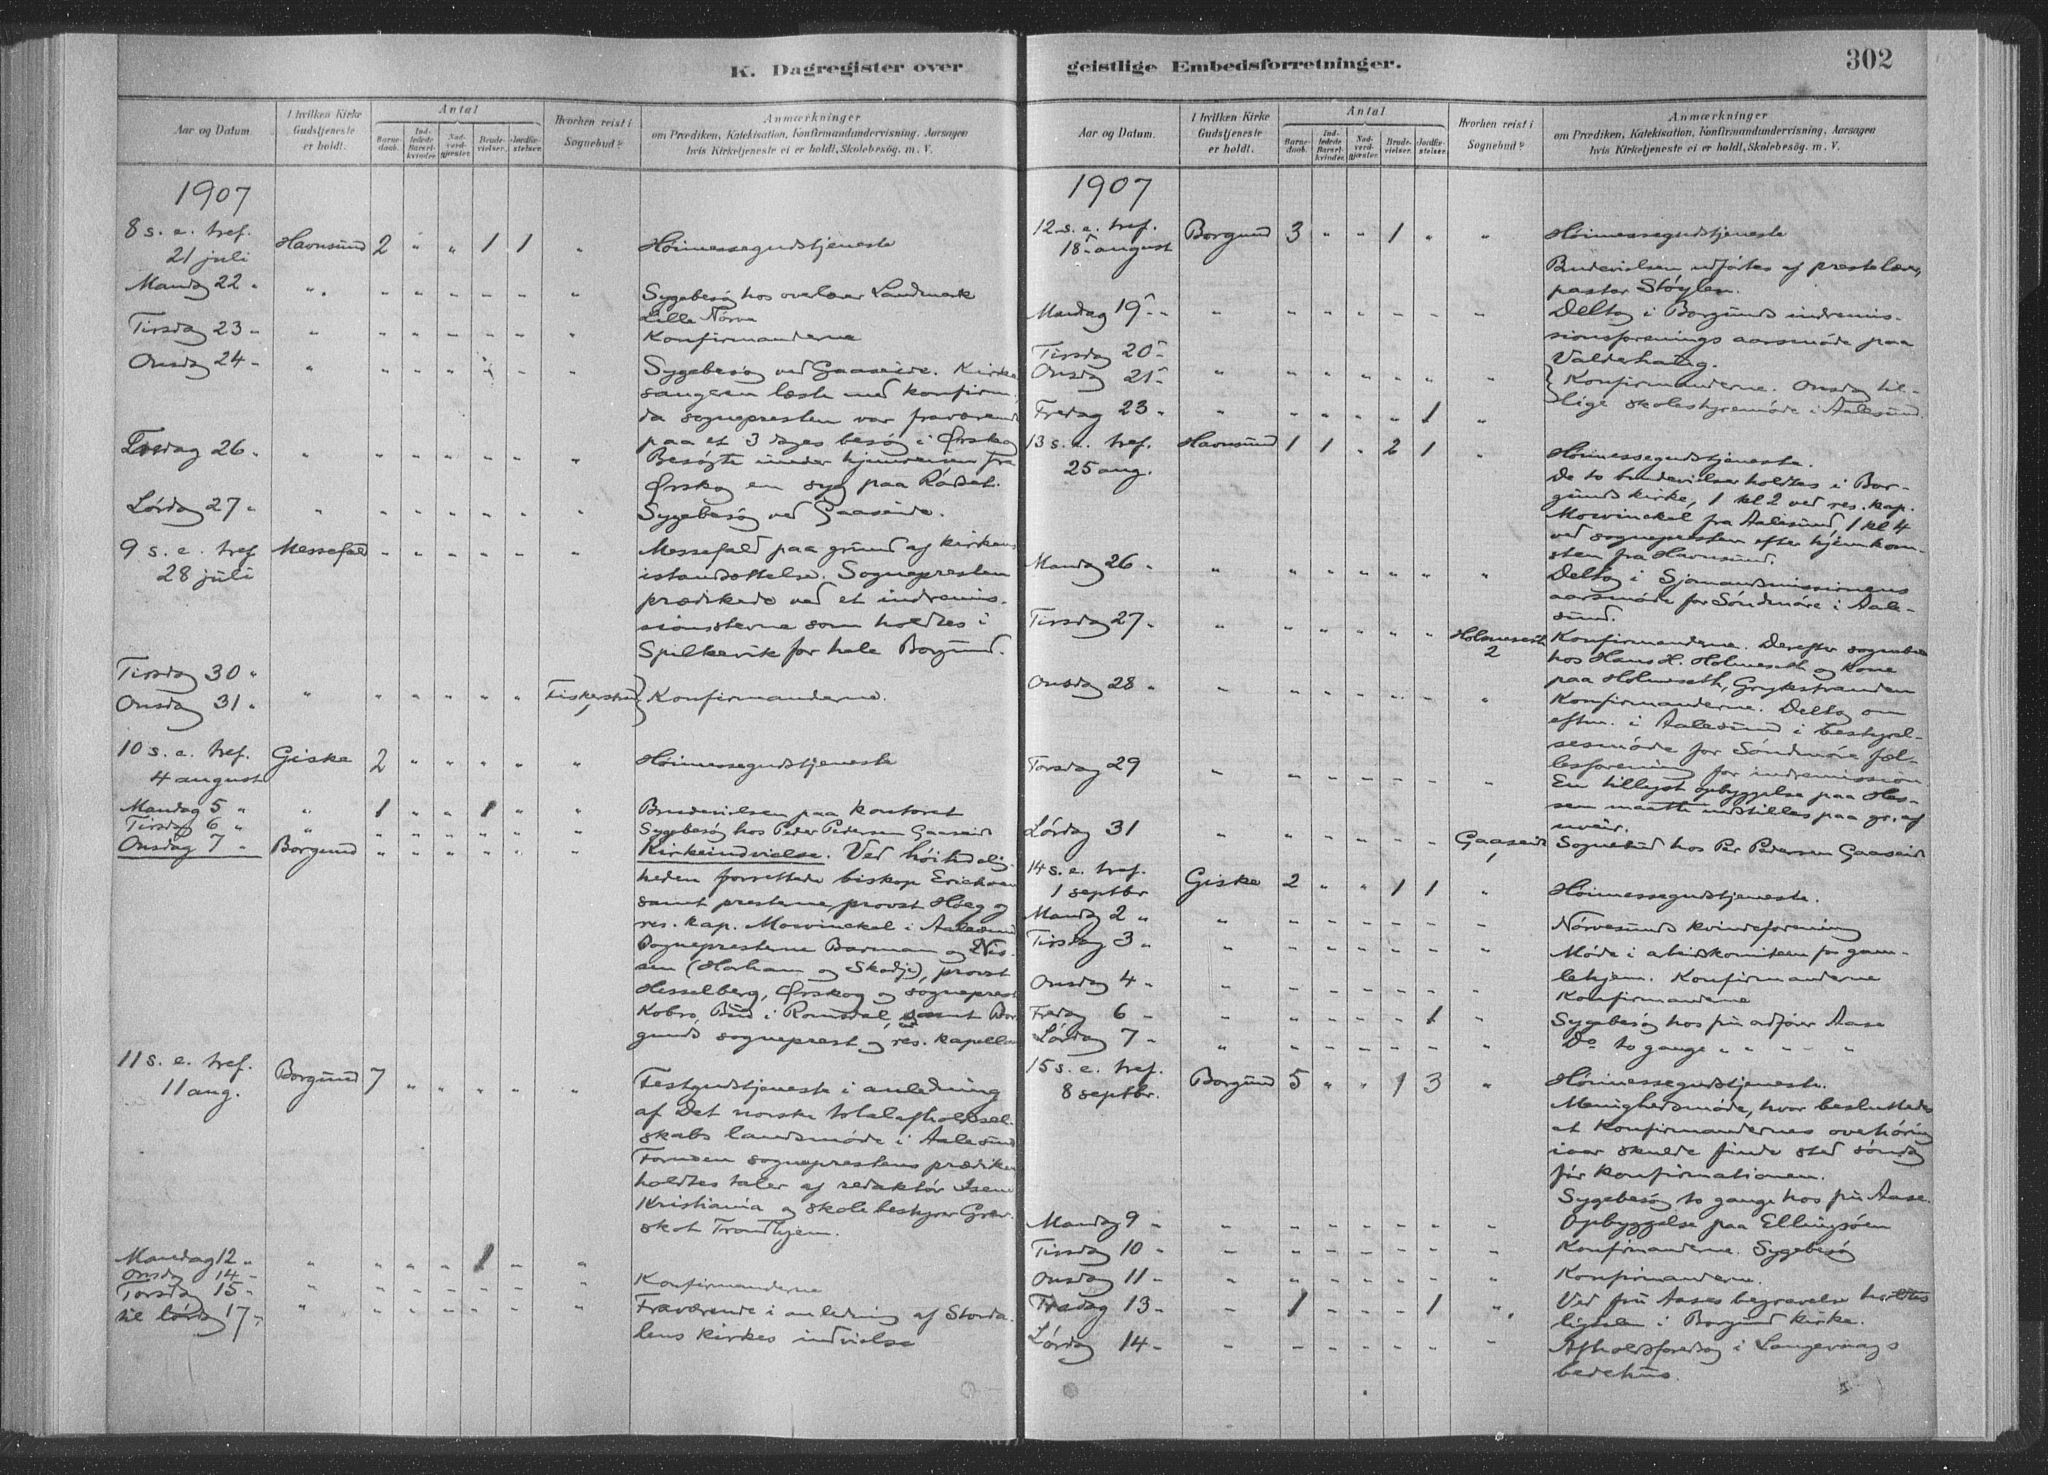 K. Dagregister over
Aar og Datum.
I hvilken Kirke Gudstjeneste er holdt.
Antal
Barnedaab.
Indledede Barselkvinder.
Nadverdgjester.
Brudevielser.
Jordfæstelser.
Hvorhen reist i Sognebud?
Anmærkninger
om Prædiken, Katekisation, Konfirmandundervisning, Aarsagen
hvis Kirketjeneste ei er holdt, Skolebesøg. m. V.
1907
8 s. e. tref. 21 juli Havnsund 2 " " 1 1 " Høimessegudstjeneste
Mandag 22 " " Sygebesøg hos overlærer Landmark
Lille Nørve
Tirsdag 23 " " Konfirmanderne
Onsdag 24 " " Sygebesøg ved Gaaseide. Kirke
sangeren læste med konfirm.
da sognepresten var fraværende
paa et 3 dages besøg i Ørskog
Fredag 26 " " Besøgte under hjemreisen fra
Ørskog en syg paa Rødset.
Lørdag 27 " " Sygebesøg ved Gaaseide.
9 s. e. tref. 28 juli Messefald Messefald paa grund af kirkens
istandsættelse. Sognepresten
prædikede ved et indremis-
sionsstevne som holdtes i
Spilkevik for hele Borgund.
Tirsdag 30 "
Onsdag 31 " " Fiskerstrand 1 } Konfirmanderne.
10 s. e. tref. 4 august Giske 2 " " " " " Høimessegudstjeneste
Mandag 5 " " 1 " " 1 " " Brudevielsen paa kontoret
Tirsdag 6 " " Sygebesøg hos Peder Pedersen Gaaseide
Onsdag 7 " Borgund Kirkeindvielse. Ved høitidelig-
heden forrettede biskop Erichsen
samt presterne, provst Høeg og
res. kap. Mowinckel i Aalesund
Sognepresterne Barman og Nis-
sen (Harham og Skodje), provst
Hesselberg, Ørskog og sogneprest
Kobro, Bud i Romsdal, samt Bor
gunds sogneprest og res. kapellan
11 s. e. tref. 11 aug. Borgund 7 " " " " " Festgudstjeneste i anledning
af Det norske totalafholdssel-
skabs landsmøde i Aalesund
Foruden sogneprestens prædiken
holdtes taler af redaktør
Kristiania og skolebestyrer
Trondhjem.
Mandag 12 " " 1
Onsdag 14 " " Konfirmanderne
Torsdag 15 "
til lørdag 17 " " Fraværende i anledning af Storda-
lens kirkes indvielse
geistlige Embedsforretninger.
302
Aar og Datum.
I hvilken Kirke Gudstjeneste er holdt.
Antal
Barnedaab.
Indledede Barselkvinder.
Nadverdgjester.
Brudevielser.
Jordfæstelser.
Hvorhen reist i Sognebud?
Anmærkninger
om Prædiken, Katekisation, Konfirmandundervisning, Aarsagen
hvis Kirketjeneste ei er holdt, Skolebesøg. m. V.
1907
12 s. e. tref. 18 august Borgund 3 " " 1 " " Høimessegudstjeneste
Brudevielsen udførtes af prestelærer,
pastor Støylen.
Mandag 19 " " Deltog i Borgunds indremis-
sionsforenings aarsmøde paa
Valderhaug.
Tirsdag 20 "
Onsdag 21 " " { Konfirmanderne. Onsdag til-
lige skolestyremøde i Aalesund.
Fredag 23 " " 1
13 s. e. tref. 25 aug. Havnsund 1 1 " 2 1 " Høimessegudstjeneste.
De to brudevielser holdtes i Bor-
gunds kirke, 1 kl 2 ved res. kap.
Mowinckel fra Aalesund, 1 kl 4
ved sognepresten efter hjemkom-
sten fra Havnsund.
Mandag 26 " " Deltog i Sjømandsmissionens
aarsmøde for Søndmøre i Aale-
sund.
Tirsdag 27 " " Holmeseth 2 Konfirmanderne. Derefter sognebud
hos Hans H. Holmeseth og kone
paa Holmeseth, Grytestranden
Onsdag 28 " " Konfirmanderne. Deltog om
eftm. i Aalesund i bestyrel-
sesmøde for Søndmøre fæl-
lesforening for indremission
Torsdag 29 " En tillyst opbyggelse paa Hes-
sen maatte indstilles paa gr. af
uveir.
Lørdag 31 " Gaaseide 1 Sognebud hos Per Pedersen Gaaseide
14 s. e. tref. 1 septbr Giske 2 " " 1 1 " Høimessegudstjeneste.
Mandag 2 " " Nørvesunds kvindeforening
Tirsdag 3 " " Møde i arbeidskomiteen for gam-
lehjem. Konfirmanderne
Onsdag 4 " " Konfirmanderne
Fredag 6 " " 1 " Sygebesøg hos fru adjför Aase
Lørdag 7 " " Do to gange " " " "
15 s. e. tref. 8 septbr. Borgund 5 " " 1 3 " Høimessegudstjeneste.
Menighedsmøde, hvor besluttedes
at konfirmandernes overhøring
iaar skulde finde sted søndag
før konfirmationen.
Sygebesøg to gange hos fru Aase.
Mandag 9 " " Opbyggelse paa Ellingsøen
Tirsdag 10 " " Konfirmanderne. Sygebesøg
Onsdag 11 " " Konfirmanderne.
Fredag 13 " " 1 1 " Ved fru Aases begravelse holdtes
ligtalen i Borgund kirke.
Lørdag 14 " " Afholdsforedrag i Langevaags
bedehus.